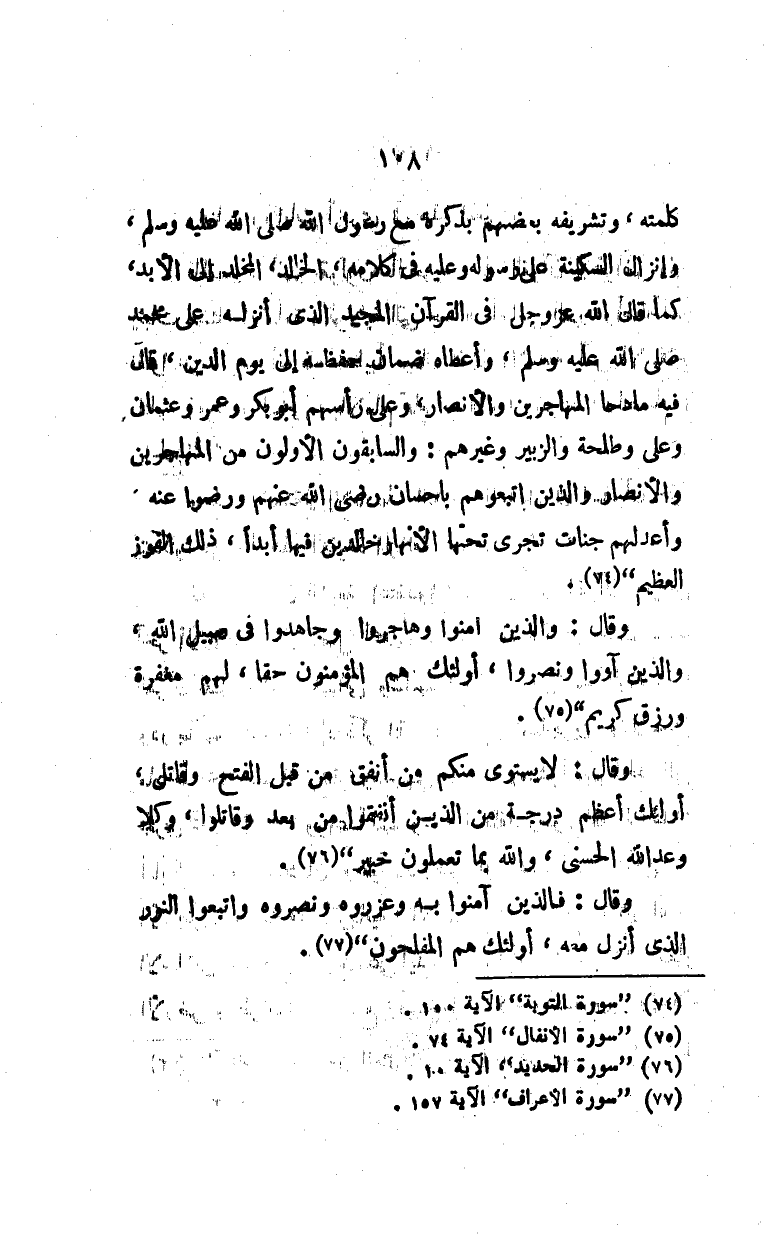 ١٧٨
كلمته ، وتشريفه بعضهم بذكره مع رسول الله صلى الله عليه وسلم ،
وإنزال السكينة على رسوله وعليه فى كلامه ، الخالد ، المخلد إلى الأبد ،
كما قال الله عزوجل فى القرآن المجيد الذى أنزلـه على محمد
صلى الله عليه وسلم ، وأعطاه ضمان حفظه إلى يوم الدين ”قال
فيه مادحا المهاجرين والأنصار ، وعلى رأسهم أبو بكر وعمر وعثمان
وعلى وطلحة والزبير وغيرهم : والسابقون الأولون من المهاجرين
والأنصار والذين اتبعوهم باحسان رضى الله عنهم ورضوا عنه
وأعدلهم جنات تجرى تحتها الأنهار خالدين فيها أبداً ، ذلك الفوز
العظيم“(٧٤) .
وقال : والذين آمنوا وهاجروا وجاهدوا فى سبيل الله ،
والذين آووا ونصروا ، أولئك هم المؤمنون حقا ، لهم مغفرة
ورزق كريم“(٧٥) .
وقال : لايستوى منكم من أنفق من قبل الفتح وقاتل ،
أولئك أعظم درجـة من الذيـن أنفقوا من بعد وقاتلوا ، وكلا
وعدالله الحسنى ، والله بما تعملون خبير“(٧٦) .
وقال : فـالذين آمنوا بـه وعزروه ونصروه واتبعوا النور
الذى أنزل معه ، أولئك هم المفلحون“(٧٧) .
(٧٤) ”سورة التوبة“ الآية ١٠٠ .
(٧٥) ”سورة الانفال“ الآية ٧٤ .
(٧٦) ”سورة الحديد“ الآية ١٠ .
(٧٧) ”سورة الاعراف“ الآية ١٥٧ .